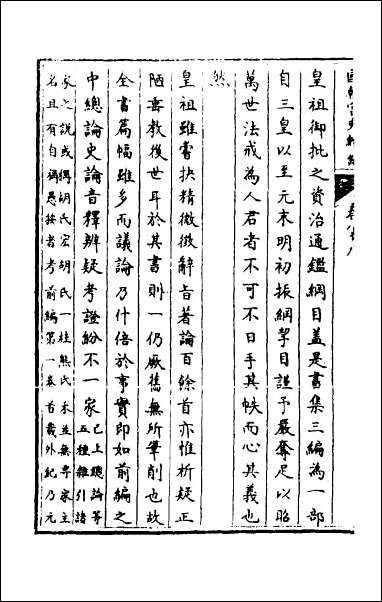 國朝宮史續編
皇祖御批之資治通鑑綱目蓋是書集三編為一部
自三皇以至元末明初振綱挈目謹予嚴奪足以昭
萬世法戒為人君者不可不日手其帙而心其義也
然
皇祖雖嘗抉精微徵辭旨著論百餘首亦惟析疑正
陋垂教後世耳於其書則一仍厥舊無所筆削也故
全書篇幅雖多而議論乃什倍於事實即如前編之
中總論史論音釋辨疑考證紛不一家
已上總論等
五種雜引諸
家之說或稱胡氏宏胡氏一桂熊氏禾並無專家主
名且有自稱愚按者考前編第一卷首載外紀乃元